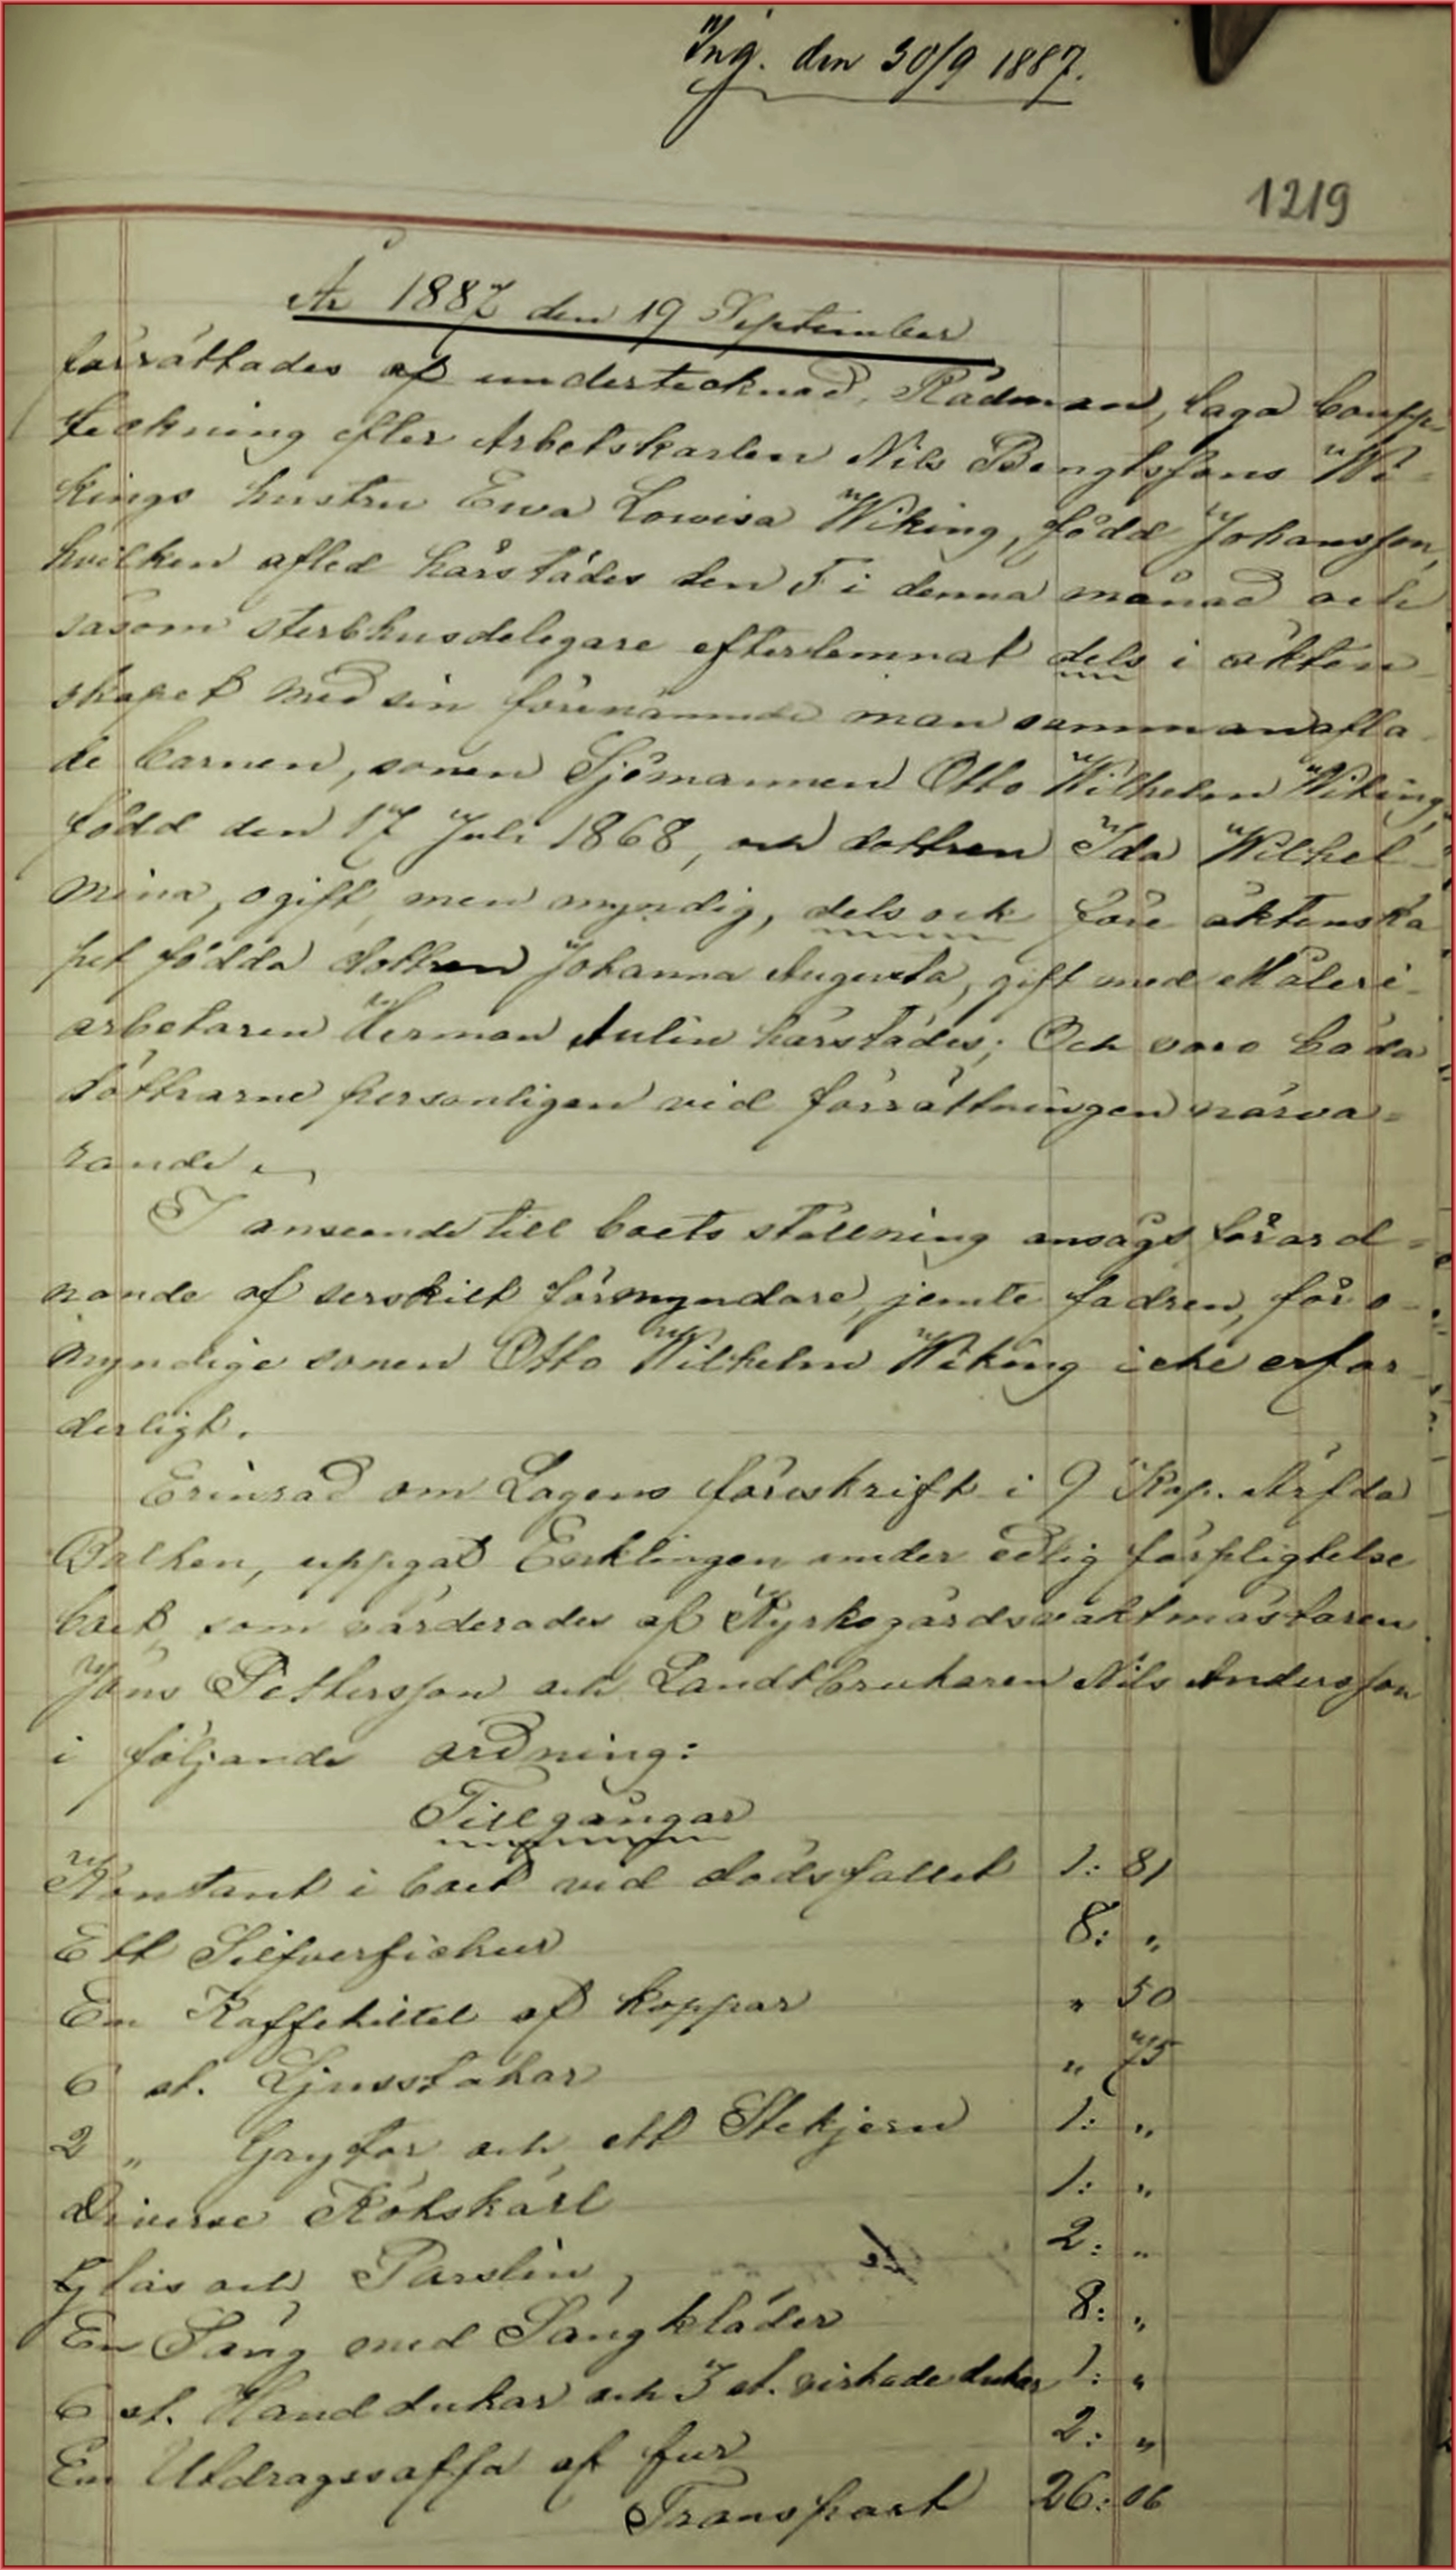 Ing. den 30/9 1887.
1219
År 1887 den 19 September
förrättades af undertecknad, Rådman, laga boupp-
teckning efter Arbetskarlen Nils Bengtssons Wi-
kings hustru Ewa Lowisa Wiking, född Johansson,
hvilken afled härstädes den 5 i denna månad och
såsom sterbhusdelegare efterlemnat dels i äkten-
skapet med sin förenämnde man sammanafla-
de barnen, sonen Sjömannen Otto Wilhelm Wiking,
född den 17 Juli 1868, och dottren Ida Wilhel-
mina, ogift, men myndig, dels ock före äktenska-
pet födda dottren Johanna Augusta, gift med Måleri-
arbetaren Herman Aulin härstädes; Och voro båda
döttrarne personligen vid förrättningen närva-
rande.
I anseende till boets ställning ansågs förord-
nande af serskilt förmyndare, jemte fadren, för o-
myndige sonen Otto Wilhelm Wiking icke erfor-
derligt.
Erinrad om Lagens föreskrift i 9 Kap. Ärfda
Balken, uppgaf Enklingen under edlig förpligtelse
boet, som värderades af Kyrkogårdsvaktmästaren
Jöns Pettersson och Landtbrukaren Nils Andersson
i följande ordning:
Tillgångar
Kontant i boet vid dödsfallet 1: 81
Ett Silfverfickur 8: "
En Kaffekittel af koppar " 50
6 st. Ljusstakar " 75
2 " Grytor och ett Stekjern 1: "
Diverse Kökskärl 1: "
Glas och Porslin, 2: "
En Säng med Sängkläder 8: "
6 st. Handdukar och 3 st. virkade dukar 1: "
En Utdragssoffa af fur 2: "
Transport 26: 06